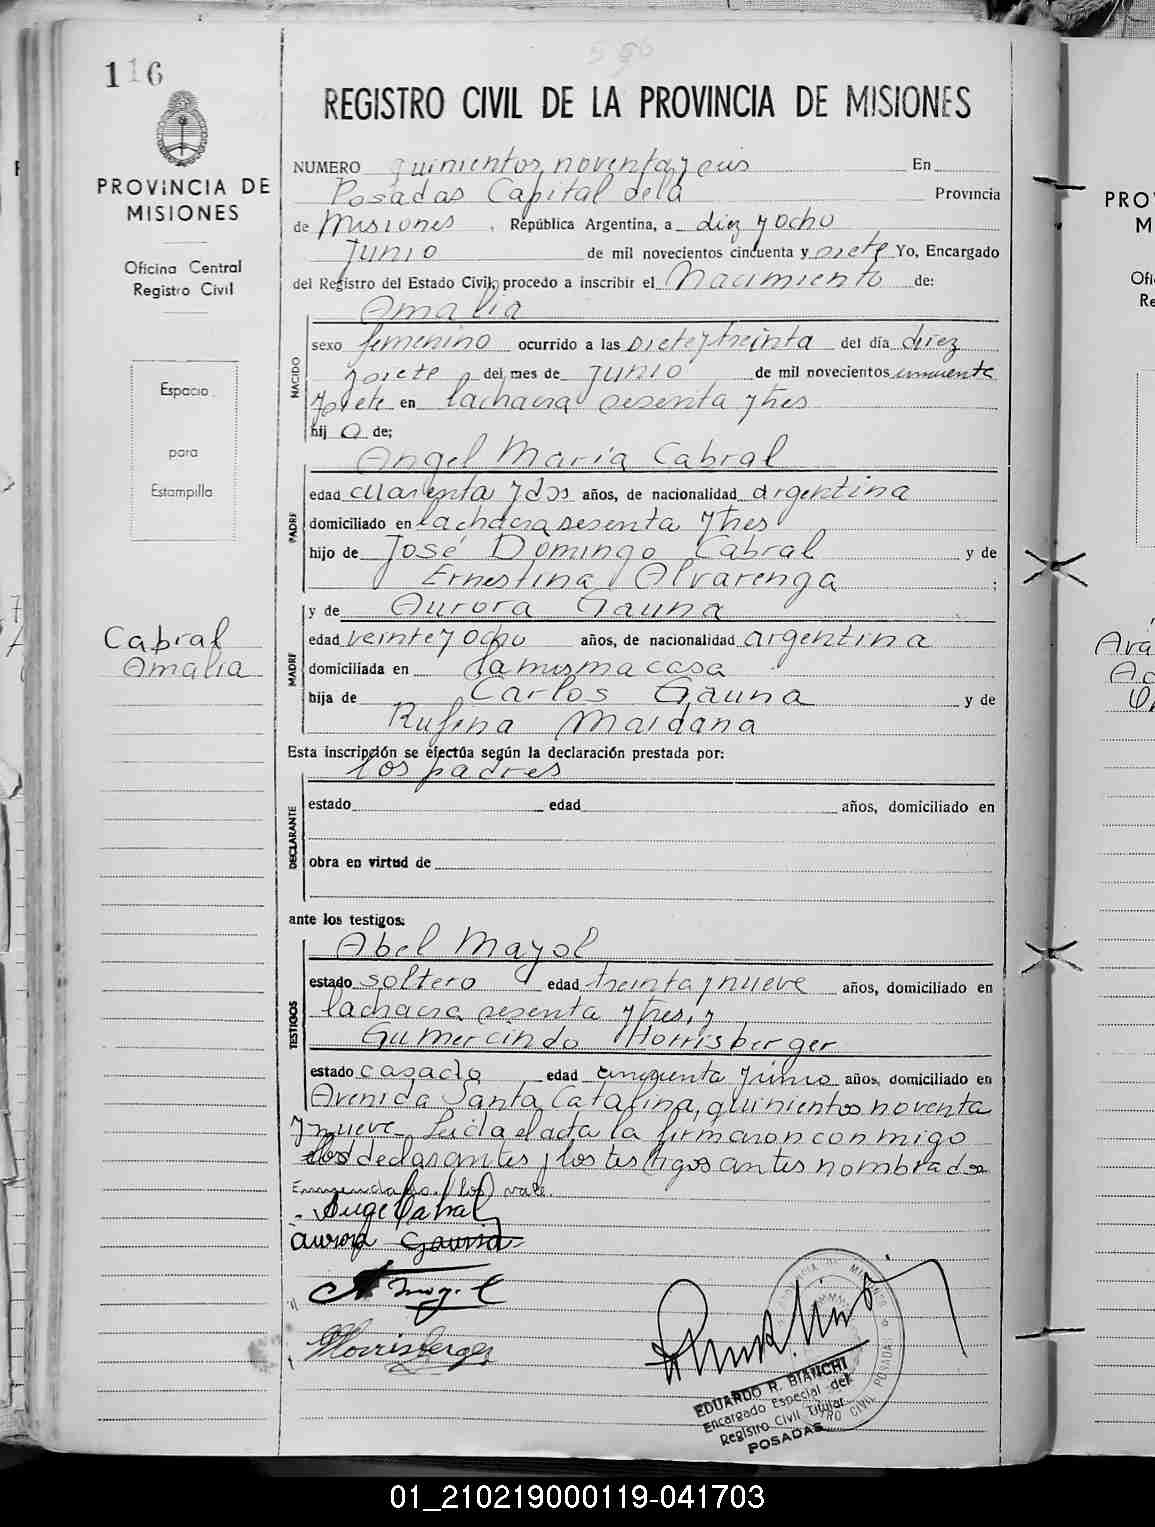 596
116
REGISTRO CIVIL DE LA PROVINCIA DE MISIONES
PROVINCIA DE
MISIONES
Oficina Central
Registro Civil
Espacio
para
Estampilla
Cabral
Amalia
NUMERO quinientos noventa y seis En
Posadas Capital de la Provincia
de Misiones, República Argentina, a diez y ocho
Junio de mil novecientos cincuenta y siete Yo, Encargado
del Registro del Estado Civil, procedo a inscribir el Nacimiento de:
Amalia
NACIDO
sexo femenino ocurrido a las siete y treinta del día diez
y siete del mes de Junio de mil novecientos cincuenta
y siete en la chacra sesenta y tres
hij a de;
Angel Maria Cabral
PADRE
edad cuarenta y dos años, de nacionalidad argentina
domiciliado en la chacra sesenta y tres
hijo de José Domingo Cabral y de
Ernestina Alvarenga ;
y de Aurora Gauna
MADRE
edad veinte y ocho años, de nacionalidad argentina
domiciliada en la misma casa
hija de Carlos Gauna y de
Rufina Maidana
Esta inscripción se efectúa según la declaración prestada por:
los padres
DECLARANTE
estado edad años, domiciliado en
obra en virtud de
ante los testigos:
Abel Mayol
TESTIGOS
estado soltero edad treinta y nueve años, domiciliado en
la chacra sesenta y tres, y
Gumercindo Horrisberger
estado casado edad cincuenta y cinco años, domiciliado en
Avenida Santa Catalina, quinientos noventa
y nueve Leida el acta la firmaron conmigo
los declarantes y los testigos antes nombrados
Enmendado: (los) vale.
Angel Cabral
Aurora Gauna
A Mayol
GHorrisberger
EDUARDO R. BIANCHI
Encargado Especial del
Registro Civil Titular
POSADAS
PROVINCIA DE MISIONES
REGISTRO CIVIL POSADAS
PRO
M
Ofi
Re
Ara
01_210219000119-041703